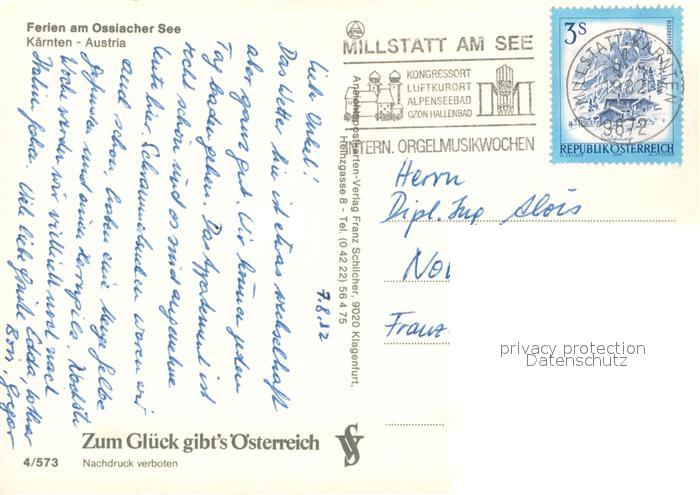 Ferien am Ossiacher See
Kärnten - Austria
7.8.82
Liebe Onkel!
Das Wetter hier ist etwas wechselhaft
aber ganz gut. Wir können jeden
Tag baden gehen. Das Appartement ist
recht schön und es sind angenehme
Leute hier. Schwammerlsuchen waren wir
auch schon, haben eine Menge gelbe
gefunden und einen Herrnpilz. Nächste
Woche werden wir vielleicht noch nach
Italien fahren. Viele liebe Grüße Edda, Lothar
Boris, Gregor
Zum Glück gibt's Österreich
4/573
Nachdruck verboten
Ansichtspostkarten-Verlag Franz Schilcher, 9020 Klagenfurt,
Heinzgasse 8 - Tel. (0 42 22) 56 4 75
MILLSTATT AM SEE
KONGRESSORT
LUFTKURORT
ALPENSEEBAD
OZON HALLENBAD
INTERN. ORGELMUSIKWOCHEN
MILLSTATT KÄRNTEN
9872
3 S
REPUBLIK ÖSTERREICH
Herrn
Dipl. Ing Alois
Franz
privacy protection
Datenschutz